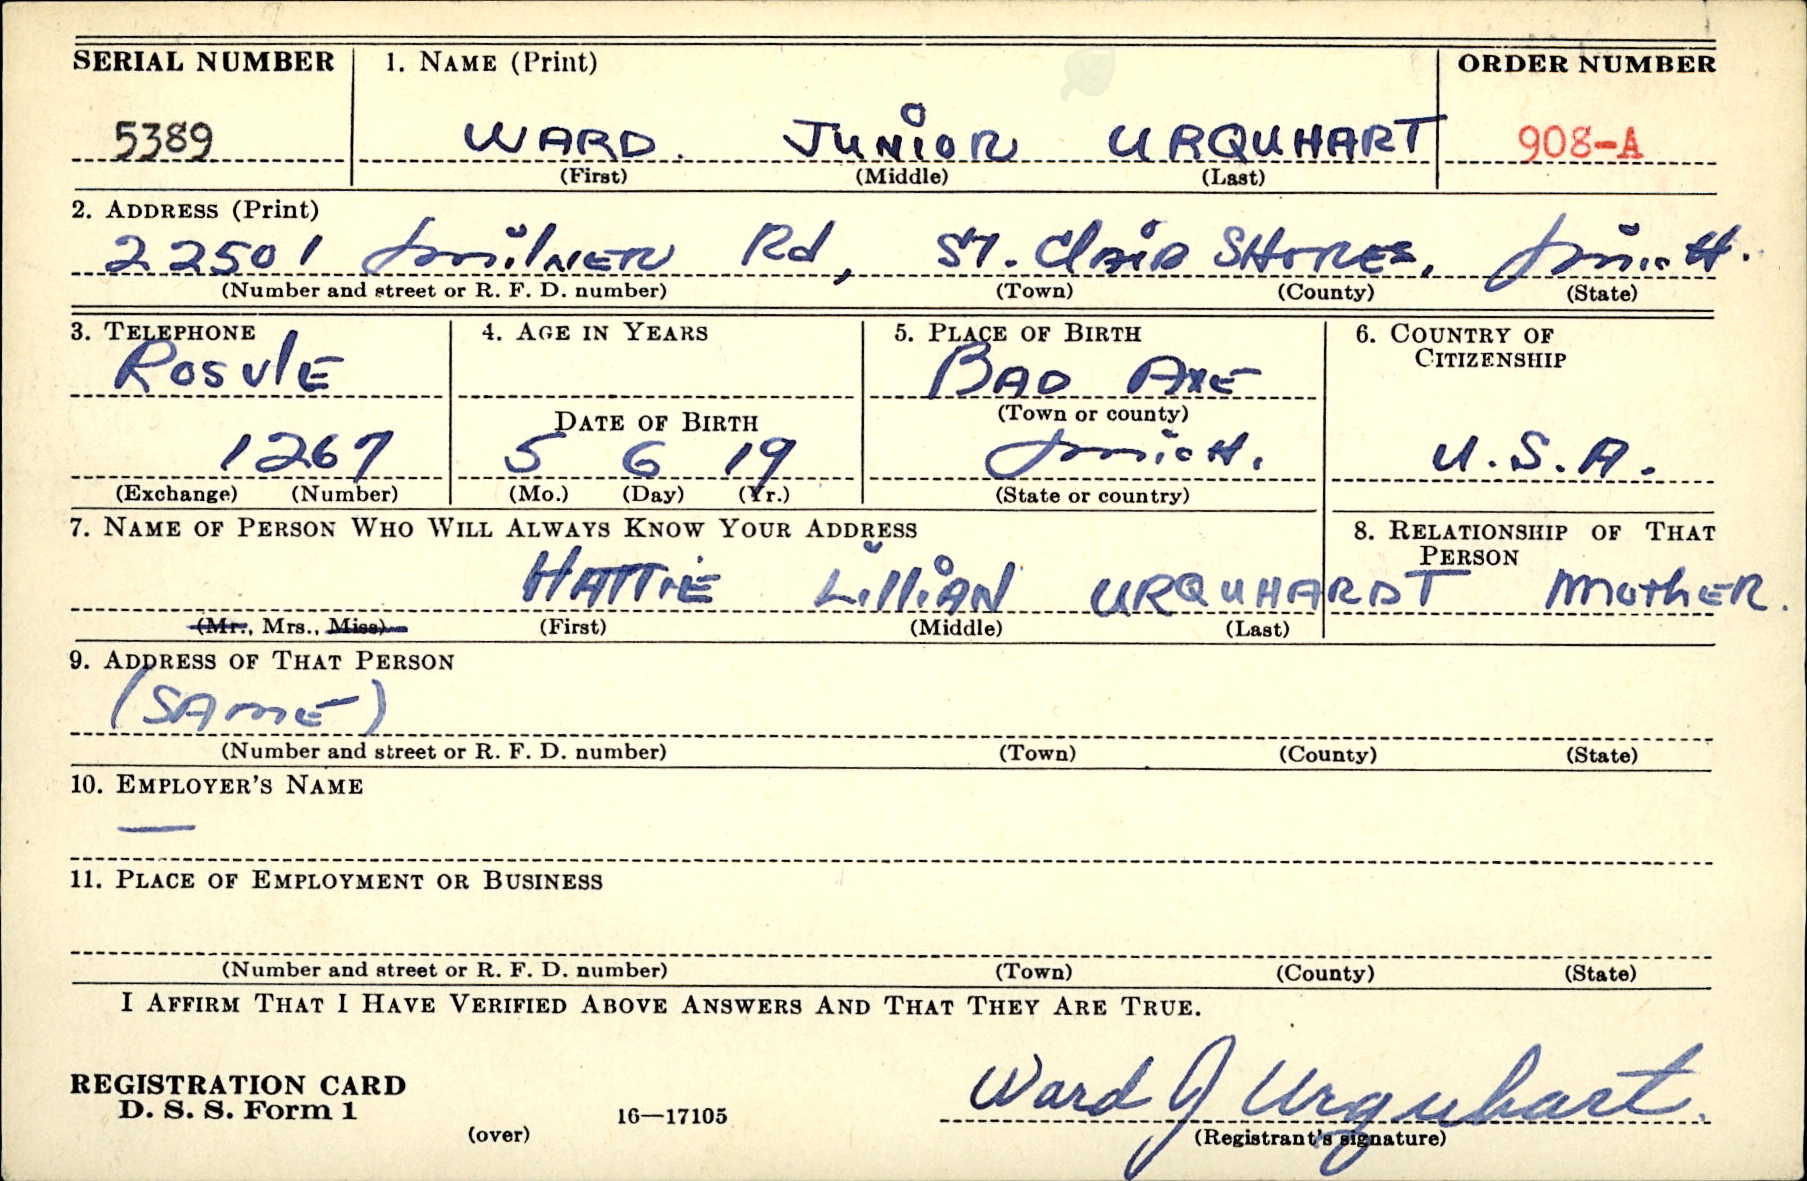 SERIAL NUMBER 1. NAME (Print) ORDER NUMBER
5389 WARD. JUNIOR URQUHART 908-A
(First) (Middle) (Last)
2. ADDRESS (Print)
22501 MilNER Rd, ST. ClAIR SHORES, Mich.
(Number and street or R. F. D. number) (Town) (County) (State)
3. TELEPHONE 4. AGE IN YEARS 5. PLACE OF BIRTH 6. COUNTRY OF CITIZENSHIP
ROSVlE BAD AXE
(Town or county)
DATE OF BIRTH
1267 5 6 19 MicH. U.S.A.
(Exchange) (Number) (Mo.) (Day) (Yr.) (State or country)
7. NAME OF PERSON WHO WILL ALWAYS KNOW YOUR ADDRESS 8. RELATIONSHIP OF THAT PERSON
HATTiE LilliAN URQUHARDT MothER.
(Mr., Mrs., Miss) (First) (Middle) (Last)
9. ADDRESS OF THAT PERSON
(SAME)
(Number and street or R. F. D. number) (Town) (County) (State)
10. EMPLOYER'S NAME
—
11. PLACE OF EMPLOYMENT OR BUSINESS
(Number and street or R. F. D. number) (Town) (County) (State)
I AFFIRM THAT I HAVE VERIFIED ABOVE ANSWERS AND THAT THEY ARE TRUE.
REGISTRATION CARD
D. S. S. Form 1 16—17105 Ward J Urquhart.
(over) (Registrant's signature)